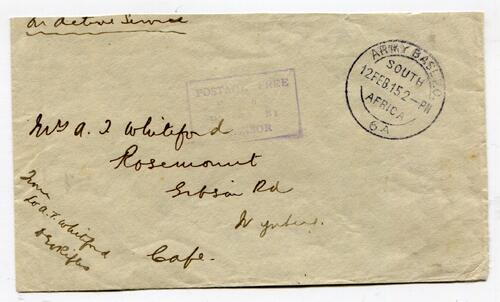 On Active Service
ARMY BASE P.O.
SOUTH
12 FEB 15 2 - PM
AFRICA
6A
POSTAGE FREE
BY
Mrs A. T Whiteford
Rosemount
Gibson Rd
Wynberg.
Cape.
From
A. T. Whitford
Rifles